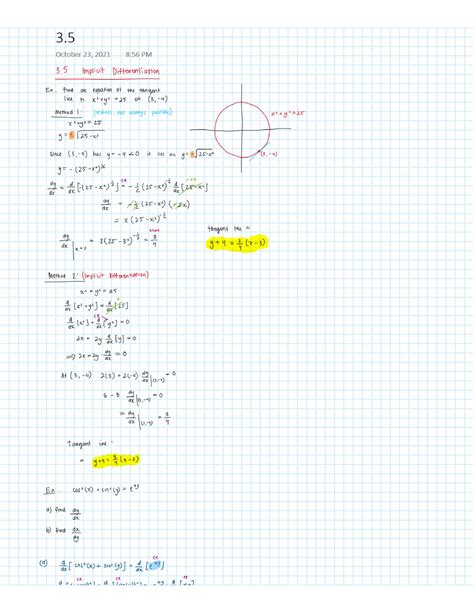 3.5
October 23, 2021 8:56 PM
3.5 Implicit Differentiation
Ex. Find an equation of the tangent
line to x² + y² = 25 at (3, -4)
Method 1: (tedious, not always possible)
x² + y² = 25
y = ± √25 - x²
x² + y² = 25
(3, -4)
Since (3, -4) has y = -4 < 0 it lies on y = - √25 - x²
y = - (25 - x²)^½
dy/dx = d/dx [-(25 - x²)^½] = -½ (25 - x²)^-½ d/dx [25 - x²]
dy/dx = -½ (25 - x²)^-½ (-2x)
= x (25 - x²)^-½
dy/dx | x=3 = 3(25 - 3²)^-½ = 3/4
tangent line =
y + 4 = 3/4 (x - 3)
Method 2: (Implicit Differentiation)
x² + y² = 25
d/dx [x² + y²] = d/dx [25]
d/dx [x²] + d/dx [y²] = 0
2x + 2y d/dx [y] = 0
⇒ 2x + 2y dy/dx = 0
At (3, -4) 2(3) + 2(-4) dy/dx |(3,-4) = 0
6 - 8 dy/dx |(3,-4) = 0
= dy/dx |(3,-4) = 3/4
Tangent line
= y + 4 = 3/4 (x - 3)
Ex.
a) find dy/dx
b) find dx/dy
(a)